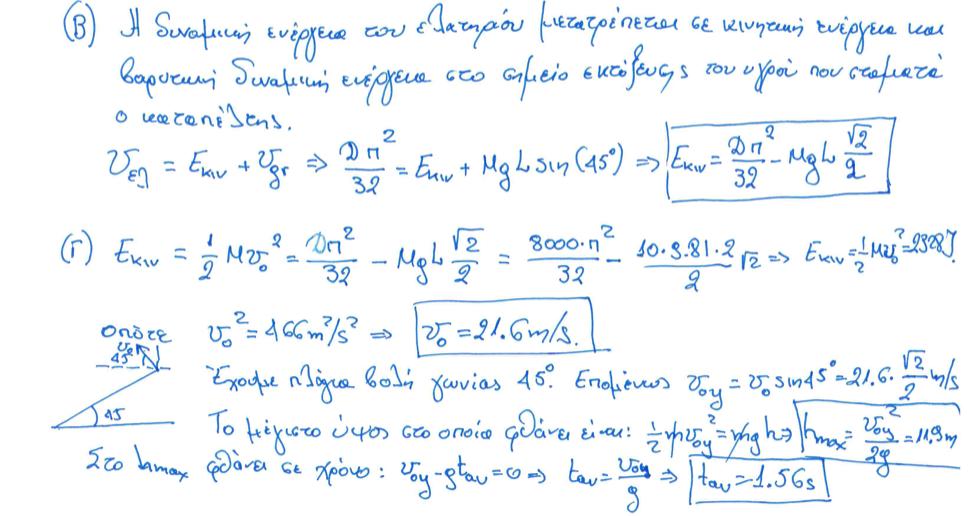 (B) Η δυναμική ενέργεια του ελατηρίου μετατρέπεται σε κινητική ενέργεια και
βαρυτική δυναμική ενέργεια στο σημείο εκτόξευσης του υγρού που σταματά
ο καταπέλτης.
U_ελ = E_κιν + U_gr ⇒ Dπ²/32 = E_κιν + MgL sin(45°) ⇒ E_κιν = Dπ²/32 - MgL √2/2
(Γ) E_κιν = 1/2 Mv₀² = Dπ²/32 - MgL √2/2 = 8000·π²/32 - 10·9.81·2/2 √2 ⇒ E_κιν = 1/2 Mv₀² = 2328J.
οπότε v₀² = 466m²/s² ⇒ v₀ = 21.6m/s.
v₀ 45°
Έχουμε πλάγια βολή γωνίας 45°. Επομένως v_oy = v₀ sin45° = 21.6·√2/2 m/s
45
Το μέγιστο ύψος στο οποίο φθάνει είναι: 1/2 m v_oy² = mgh ⇒ h_max = v_oy²/2g = 11.9m
Στο h_max φθάνει σε χρόνο: v_oy - gt_αν = 0 ⇒ t_αν = v_oy/g ⇒ t_αν = 1.56s